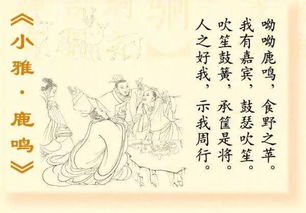 《小雅·鹿鸣》
呦呦鹿鸣，食野之苹。
我有嘉宾，鼓瑟吹笙。
吹笙鼓簧，承筐是将。
人之好我，示我周行。